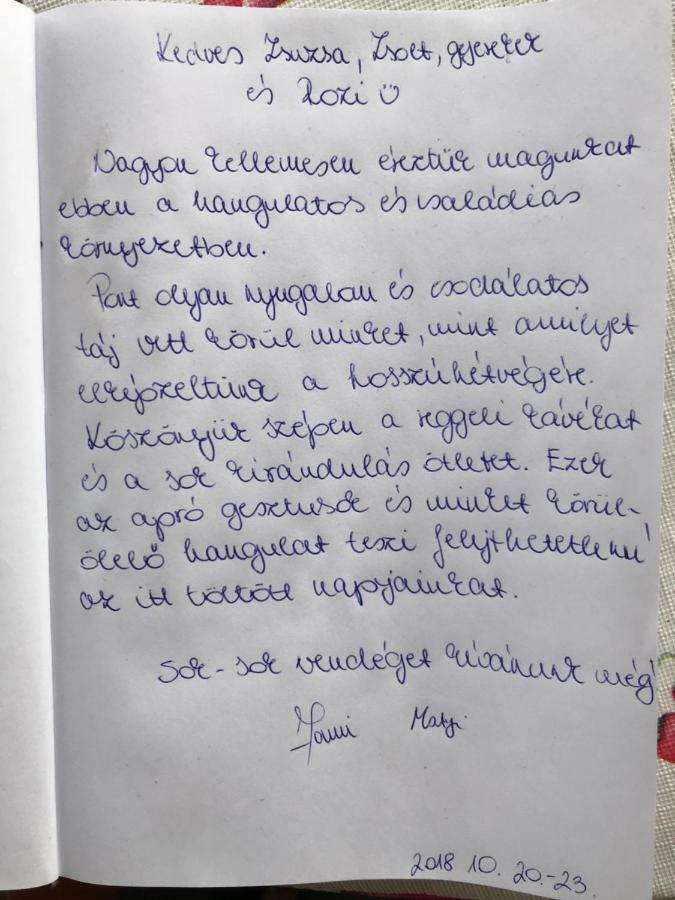 Kedves Zsuzsa, Zsolt, gyerekek
és Rozi
Nagyon kellemesen éreztük magunkat
ebben a hangulatos és családias
környezetben.
Pont olyan nyugalom és csodálatos
táj vett körül minket, mint amilyet
elképzeltünk a hosszúhétvégére.
Köszönjük szépen a reggeli kávékat
és a sok kirándulás ötletet. Ezek
az apró gesztusok és minket körül-
ölelő hangulat teszi felejthetetlenné
az itt töltött napjainkat.
Sok-sok vendéget kívánunk még!
Matyi
2018 10. 20.-23.